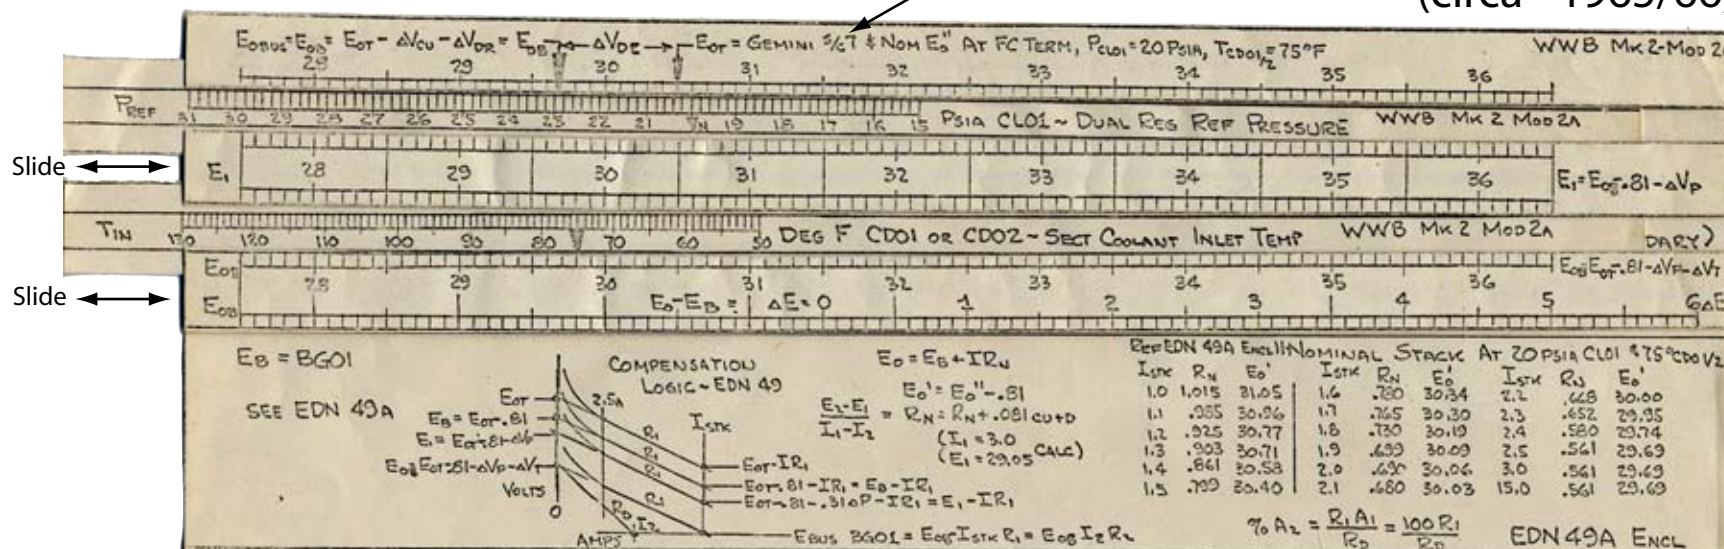 (circa 1965/66)
E₀BUS = E₀B = E₀T - ΔVCU - ΔVDR = EDB ← ΔVDE → E₀T = GEMINI S/C 7 & NOM E₀" AT FC TERM, PCL01 = 20 PSIA, TCD01/2 = 75°F
WWB MK 2-MOD 2A
28 29 30 31 32 33 34 35 36
PREF
31 30 29 28 27 26 25 24 23 22 21 20 19 18 17 16 15 PSIA CL01 ~ DUAL REG REF PRESSURE WWB MK 2 MOD 2A
Slide E₁ 28 29 30 31 32 33 34 35 36 E₁ = E₀B - .81 - ΔVP
TIN
130 120 110 100 90 80 70 60 50 DEG F CD01 OR CD02 ~ SECT COOLANT INLET TEMP WWB MK 2 MOD 2A DARY)
E₀B 28 29 30 31 32 33 35 36 E₀B = E₀T - .81 - ΔVP - ΔVT
Slide E₀B E₀ - EB = ΔE = 0 1 2 3 4 5 6 ΔE
EB = BG01
SEE EDN 49A
COMPENSATION
LOGIC ~ EDN 49
E₀T
EB = E₀T - .81
E₁ = E₀T - .81 - ΔVP
E₀B = E₀T - .81 - ΔVP - ΔVT
VOLTS
0
2.5A
ISTK
R₁
R₁
R₁
R₁
RD
I₂
AMPS
E₀T - IR₁
E₀T - .81 - IR₁ = EB - IR₁
E₀T - .81 - .31ΔP - IR₁ = E₁ - IR₁
EBUS BG01 = E₀B ISTK R₁ = E₀B I₂R₂
E₀ = EB + IRN
E₀' = E₀" - .81
E₂ - E₁ / I₁ - I₂ = RN = RN + .081 CU+D
(I₁ = 3.0
(E₁ = 29.05 CALC)
REF EDN 49A ENCL II NOMINAL STACK AT 20 PSIA CL01 & 75° CD0 1/2
ISTK RN E₀' ISTK RN E₀' ISTK RN E₀'
1.0 1.015 31.05 1.6 .780 30.34 2.2 .668 30.00
1.1 .985 30.96 1.7 .765 30.30 2.3 .652 29.95
1.2 .925 30.77 1.8 .730 30.19 2.4 .580 29.74
1.3 .903 30.71 1.9 .699 30.09 2.5 .561 29.69
1.4 .861 30.58 2.0 .690 30.06 3.0 .561 29.69
1.5 .799 30.40 2.1 .680 30.03 15.0 .561 29.69
% A₂ = R₁A₁ / RD = 100 R₁ / RD
EDN 49A ENCL